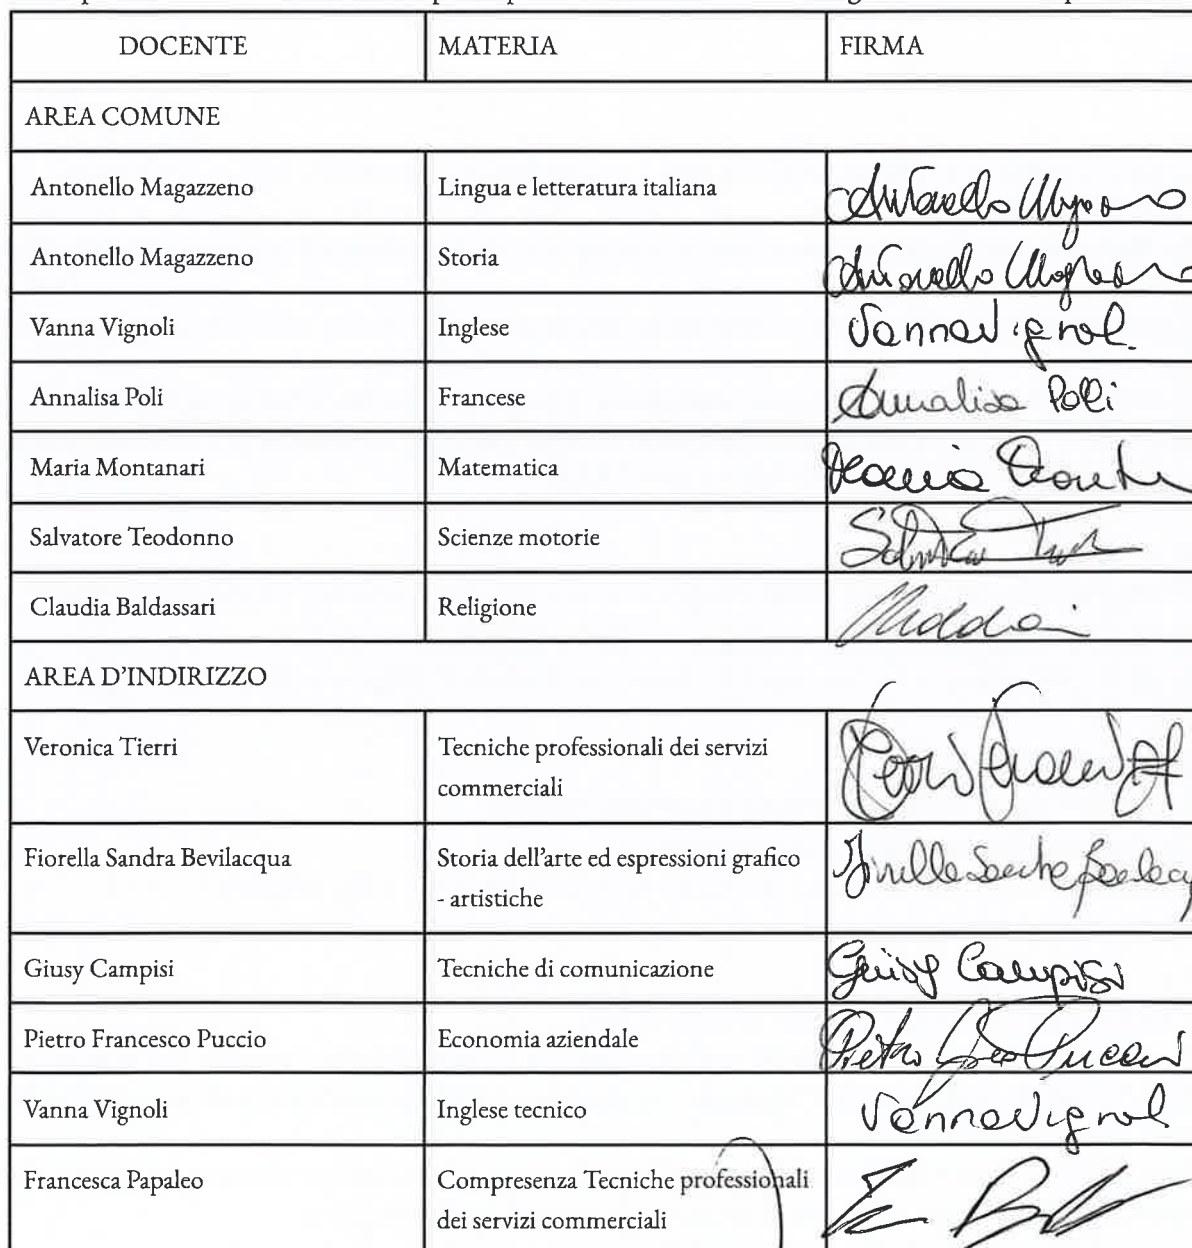 DOCENTE MATERIA FIRMA
AREA COMUNE
Antonello Magazzeno Lingua e letteratura italiana Antonello
Antonello Magazzeno Storia Antonello
Vanna Vignoli Inglese Vanna Vignol
Annalisa Poli Francese Annalisa Poli
Maria Montanari Matematica
Salvatore Teodonno Scienze motorie
Claudia Baldassari Religione
AREA D'INDIRIZZO
Veronica Tierri Tecniche professionali dei servizi
commerciali
Fiorella Sandra Bevilacqua Storia dell'arte ed espressioni grafico
- artistiche
Giusy Campisi Tecniche di comunicazione Giusy Campisi
Pietro Francesco Puccio Economia aziendale Pietro
Vanna Vignoli Inglese tecnico Vanna Vignol
Francesca Papaleo Compresenza Tecniche professionali
dei servizi commerciali